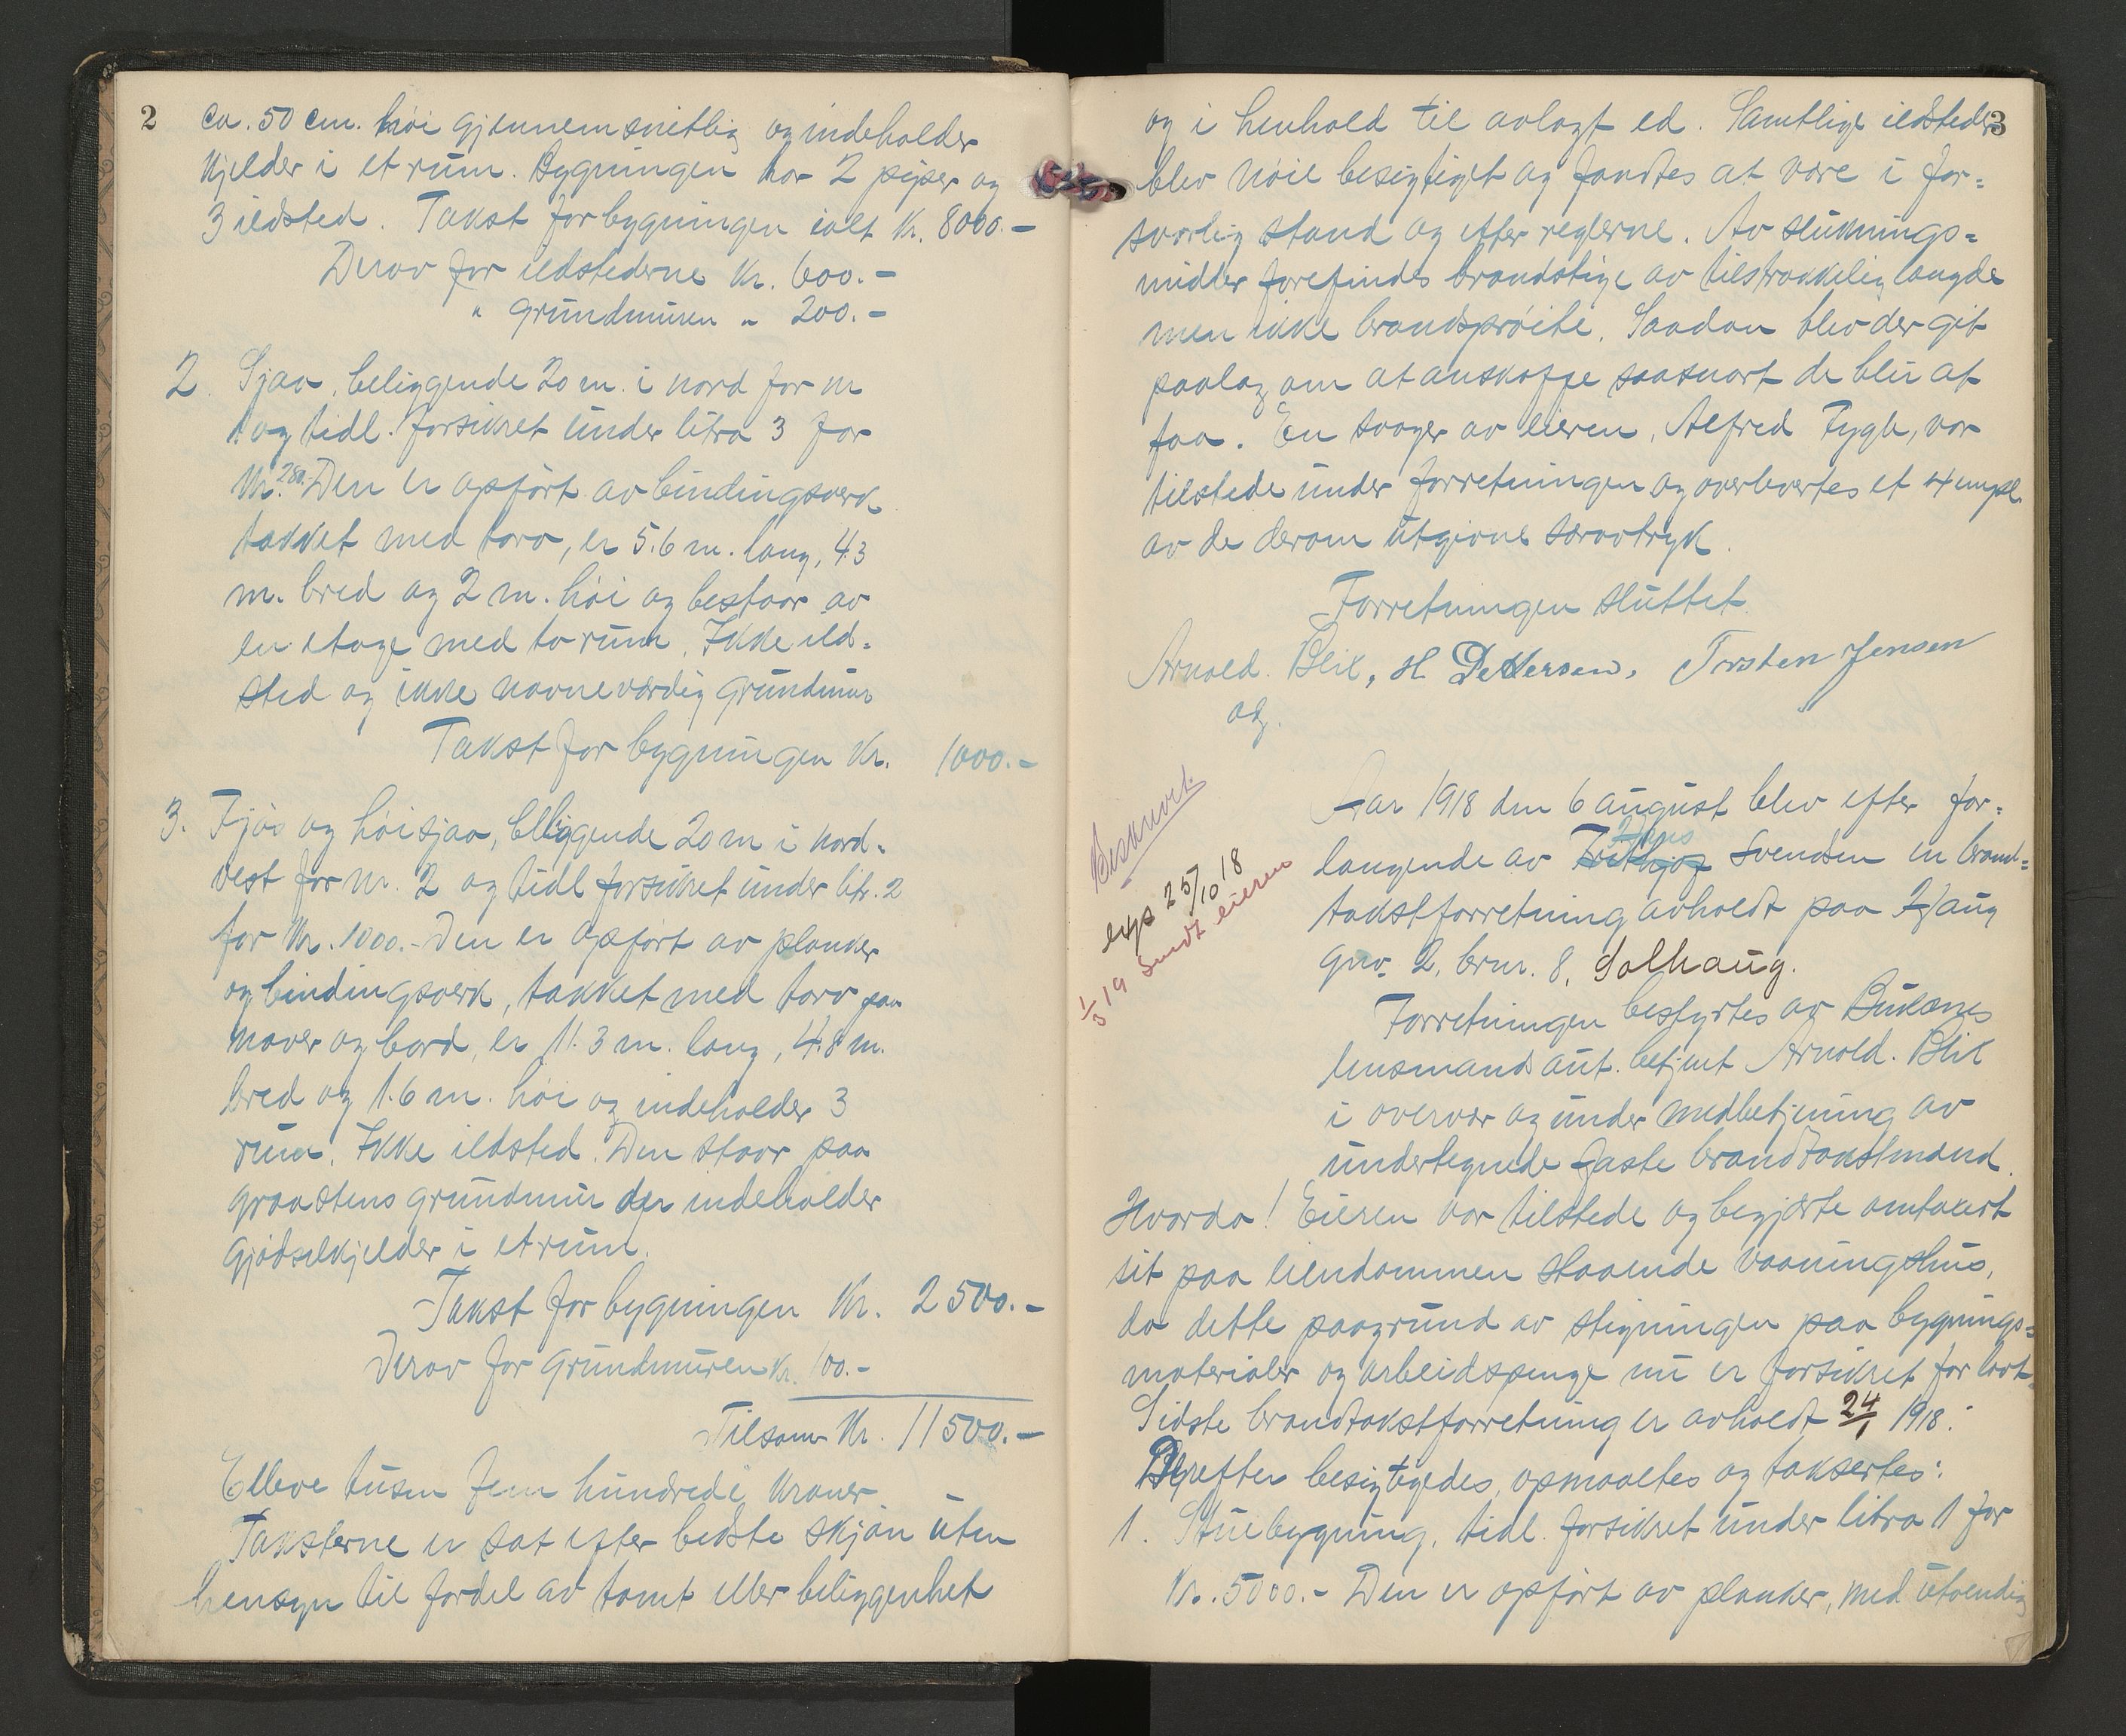 2
ca. 50 cm. høi gjennemsnitlig og indeholder
kjelder i et rum. Bygningen har 2 piper og
3 ildsted. Takst for bygningen ialt kr. 8000.-
Derav for ildstederne kr. 600.-
" grundmuren " 200.-
2. Sjaa, beliggende 20 m. i nord for nr
1 og tidl. forsikret under litra 3 for
kr. 280.- Den er opført av bindingsverk
tækket med torv, er 5.6 m. lang, 4.3
m. bred og 2 m. høi og bestaar av
en etage med to rum. Ikke ild-
sted og ikke navneværdig grundmur
Takst for bygningen kr. 1000.-
3. Fjøs og høisjaa, beliggende 20 m i nord-
vest for nr. 2 og tidl forsikret under litr. 2
for kr. 1000.- Den er opført av planker
og bindingsverk, tækket med torv paa
næver og bord, er 11.3 m. lang, 4.8 m.
bred og 1.6 m. høi og indeholder 3
rum. Ikke ildsted. Den staar paa
graastens grundmur der indeholder
gjødselkjelder i et rum.
Takst for bygningen kr. 2500.-
Derav for grundmuren kr. 100.-
Tilsam kr. 11500.-
Elleve tusen fem hundrede kroner
Taksterne er sat efter bedste skjøn uten
hensyn til fordel av tomt eller beliggenhet
3
og i henhold til avlagt ed. Samtlige ildsteder
blev nøie besigtiget og fandtes at være i for-
svarlig stand og efter reglerne. Av sluknings-
midler forefindes brandstige av tilstrækkelig længde
men ikke brandsprøite. Saadan blev der git
paalæg om at anskaffe saasnart de blir at
faa. En svoger av eieren, Alfred Fygle, var
tilstede under forretningen og overlevertes et expl.
av de derom utgivne særavtryk.
Forretningen sluttet.
Arnold. Blix, H. Pettersen, Torsten Jensen
Beskrevet.
exp 25/10 18
1/3 19 sendt eieren
Aar 1918 den 6 august blev efter for-
langende av Frithjof Jens Svendsen en brand-
takstforretning avholdt paa
gnr. 2, brnr. 8, Solhaug.
Forretningen bestyrtes av Buksnes
lensmands aut. betjent Arnold. Blix
i overvær og under medbetjening av
undertegnede faste brandtakstmænd.
Hvorda! Eieren var tilstede og begjærte omtaxert
sit paa eiendommen staaende vaaningshus,
da dette paagrund av stigningen paa bygnings-
materialer og arbeidspenge nu er forsikret for lavt.
Sidste brandtakstforretning er avholdt 24/1 1918.
Derefter besigtigedes, opmaaltes og taksertes:
1. Stuebygning, tidl. forsikret under litra 1 for
kr. 5000.- Den er opført av planker, med utvendig